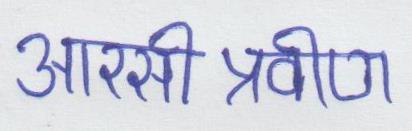 आरसी प्रवीण